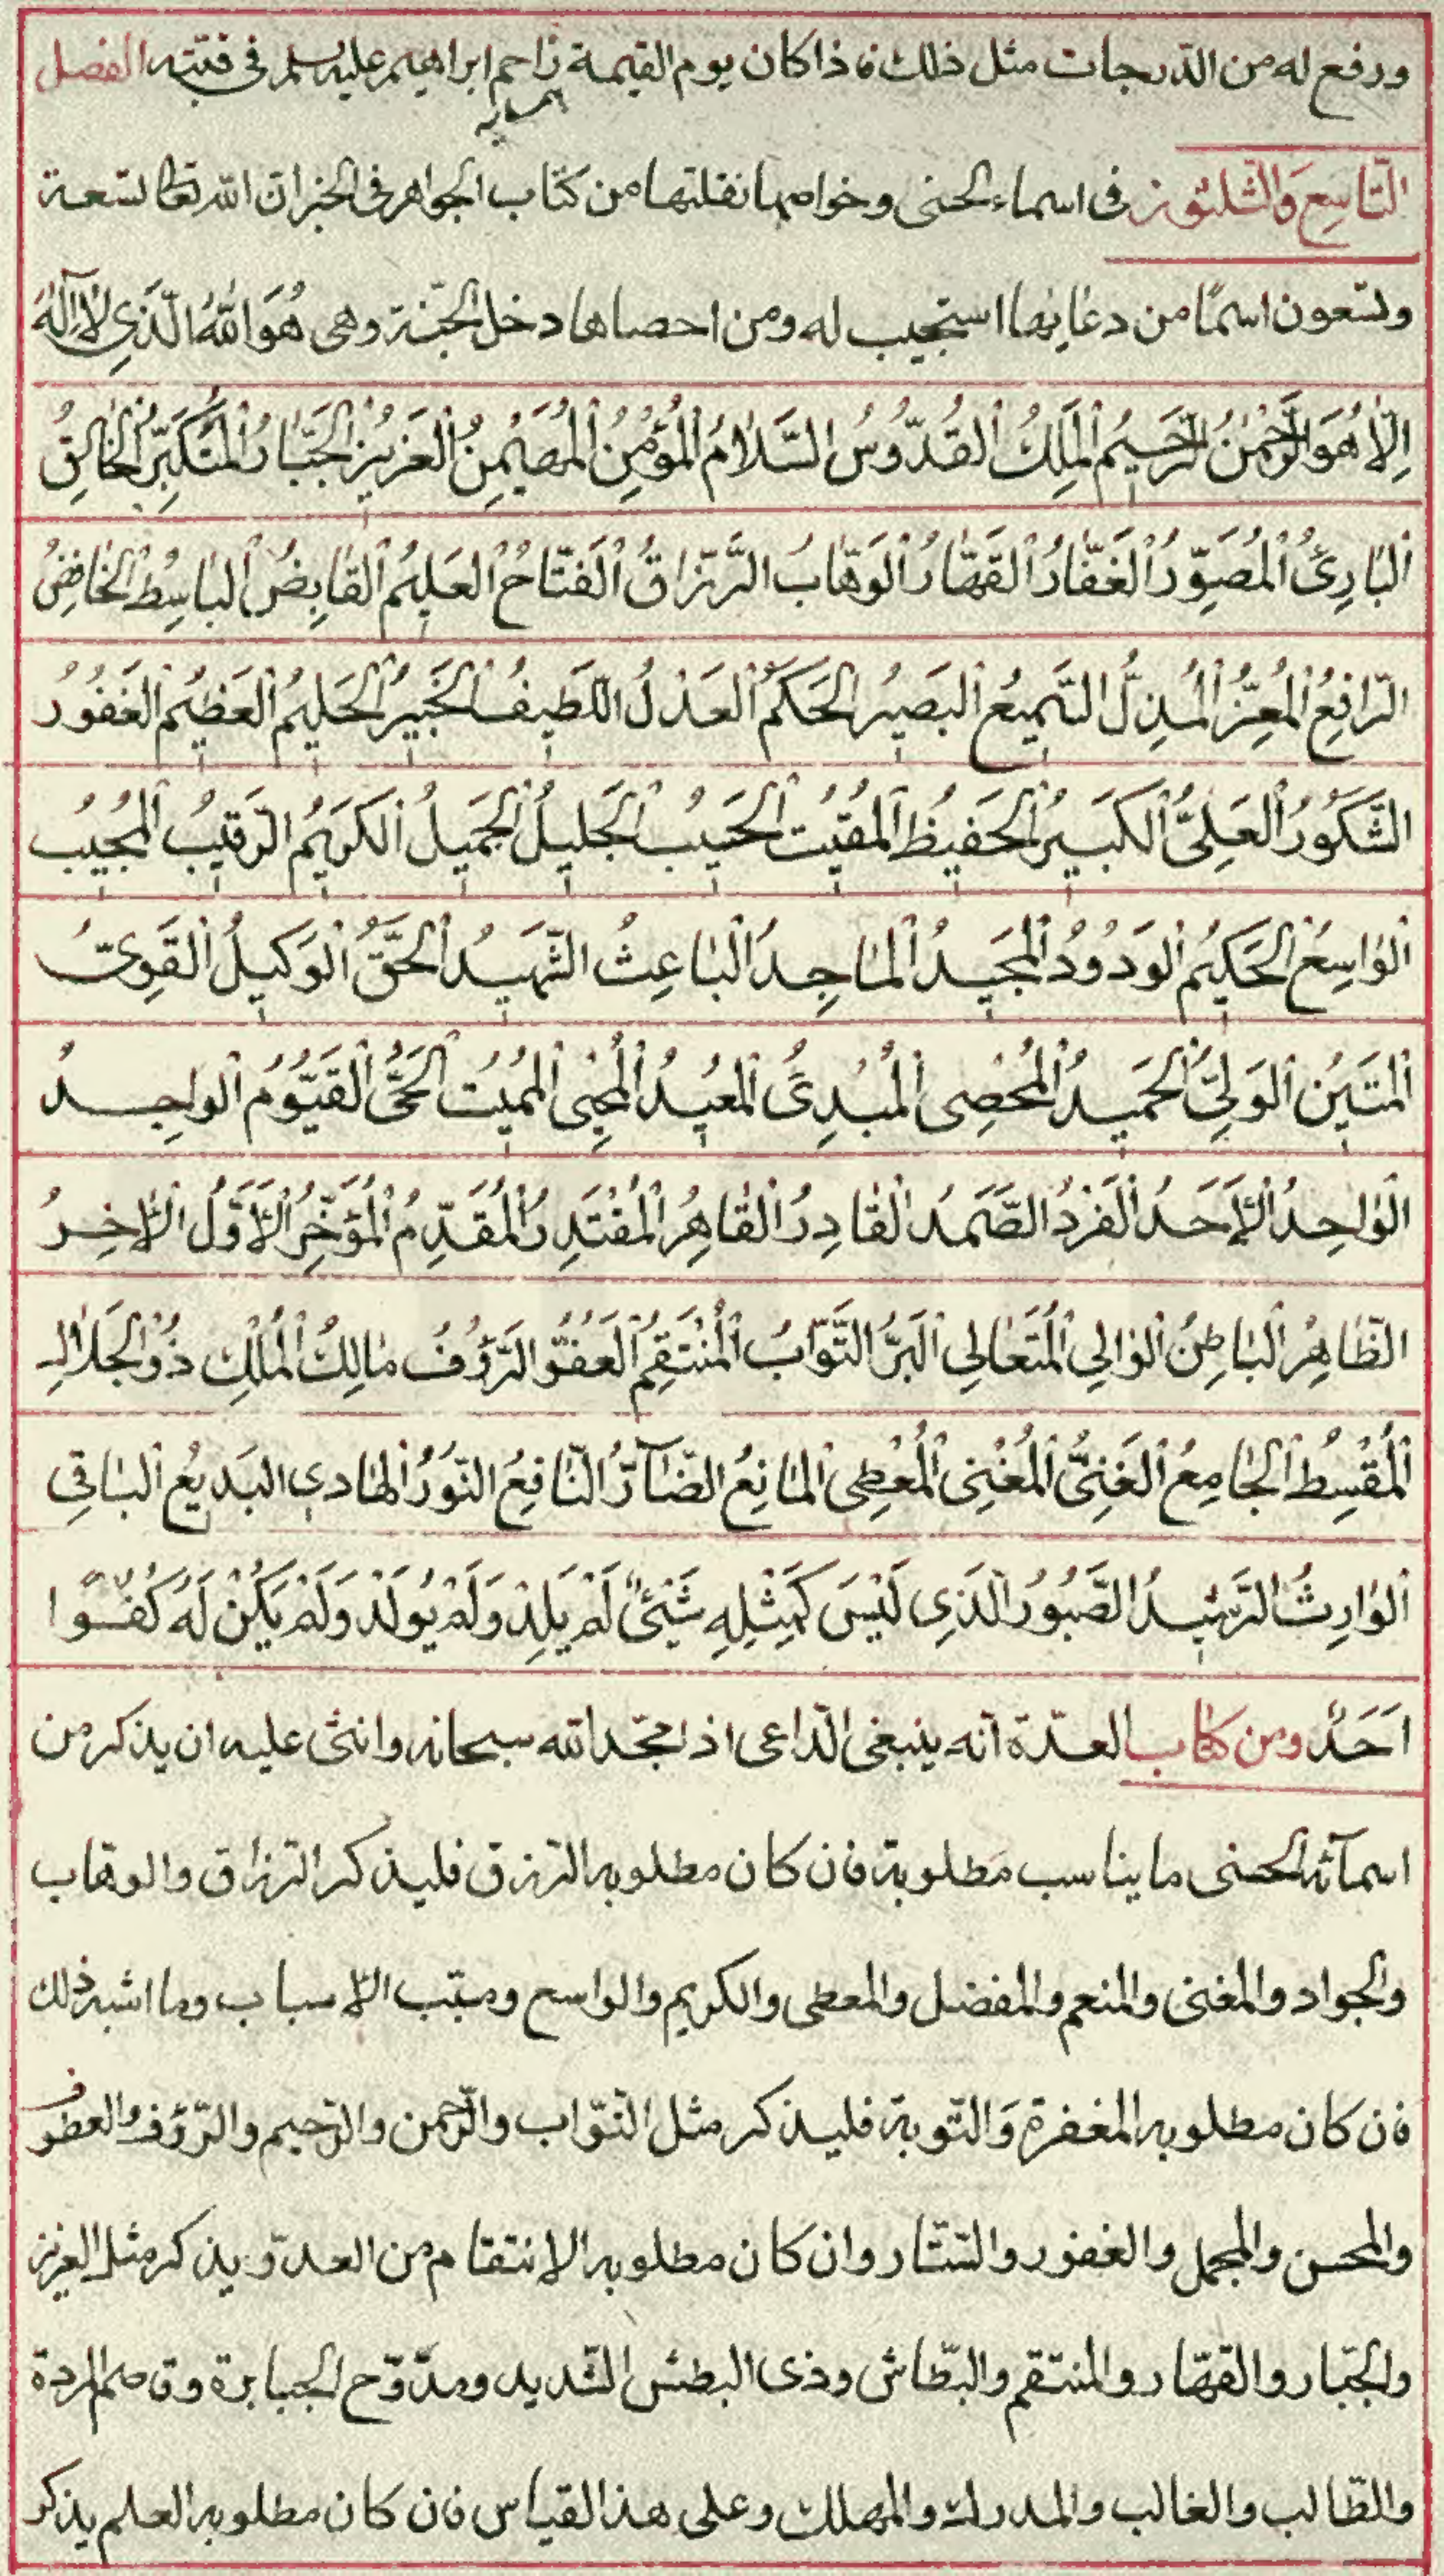 ورفع له من الدّرجات مثل ذلك فاذا كان يوم القيمة زاحم ابراهيم عليه السلم فى قبّته الفصل
التّاسِع وَالثّلثون فى اسماء الحسنى وخواصها نقلتها من كتاب الجواهر فى الخبر ان الله تعالى تسعة
وتسعون اسمًا من دعا بها استجيب له ومن احصاها دخل الجنّة وهى هُوَ اللهُ الَّذِى لا اِلٰهَ
اِلّا هُوَ الرَّحْمٰنُ الرَّحيمُ اَلْمَلِكُ اَلْقُدُّوسُ السَّلامُ اَلْمُؤْمِنُ اَلْمُهَيْمِنُ اَلْعَزيزُ اَلْجَبّارُ اَلْمُتَكَبِّرُ اَلْخالِقُ
اَلْبارِئُ اَلْمُصَوِّرُ اَلْغَفّارُ اَلْقَهّارُ اَلْوَهّابُ الرَّزّاقُ اَلْفَتّاحُ اَلْعَليمُ اَلْقابِضُ اَلْباسِطُ اَلْخافِضُ
الرّافِعُ اَلْمُعِزُّ اَلْمُذِلُّ السَّميعُ اَلْبَصيرُ اَلْحَكَمُ اَلْعَدْلُ اَللَّطيفُ اَلْخَبيرُ اَلْحَليمُ اَلْعَظيمُ اَلْغَفُورُ
الشَّكُورُ اَلْعَلِىُّ اَلْكَبيرُ اَلْحَفيظُ اَلْمُقيتُ اَلْحَسيبُ اَلْجَليلُ اَلْجَميلُ اَلْكَريمُ الرَّقيبُ اَلْمُجيبُ
اَلْواسِعُ اَلْحَكيمُ اَلْوَدُودُ اَلْمَجيدُ اَلْماجِدُ اَلْباعِثُ الشَّهيدُ اَلْحَقُّ اَلْوَكيلُ اَلْقَوِىُّ
اَلْمَتينُ اَلْوَلِىُّ اَلْحَميدُ اَلْمُحْصِى اَلْمُبْدِئُ اَلْمُعيدُ اَلْمُحْيِى اَلْمُميتُ اَلْحَىُّ اَلْقَيُّومُ اَلْواجِدُ
اَلْواحِدُ اَلْاَحَدُ اَلْفَرْدُ الصَّمَدُ اَلْقادِرُ اَلْقاهِرُ اَلْمُقْتَدِرُ اَلْمُقَدِّمُ اَلْمُؤَخِّرُ اَلْاَوَّلُ اَلْاخِرُ
الظّاهِرُ اَلْباطِنُ اَلْوالِى اَلْمُتَعالِى اَلْبَرُّ التَّوّابُ اَلْمُنْتَقِمُ اَلْعَفُوُّ الرَّؤُفُ مالِكُ اَلْمُلْكِ ذُو اَلْجَلالِ
اَلْمُقْسِطُ اَلْجامِعُ اَلْغَنِىُّ اَلْمُغْنِى اَلْمُعْطِى اَلْمانِعُ الضّآرُّ النّافِعُ النُّورُ اَلْهادِى اَلْبَديعُ اَلْباقِى
اَلْوارِثُ الرَّشيدُ الصَّبُورُ الَّذِى لَيْسَ كَمِثْلِهِ شَيْئٌ لَمْ يَلِدْ وَلَمْ يُولَدْ وَلَمْ يَكُنْ لَهُ كُفُوًا
اَحَدٌ ومن كتاب العدّة انّه ينبغى الدّاعى اذا مجّد الله سبحانه واثنى عليه ان يذكر من
اسمآئه الحسنى ما يناسب مطلوبة فان كان مطلوبه الرزق فليذكر الرزاق والوهاب
والجواد والمغنى والمنعم والمفضل والمعطى والكريم والواسع ومسبّب الاسباب وما اشبه ذلك
فان كان مطلوبه المغفرة وَالتّوبة فليذكر مثل التوّاب والرّحمن والرّحيم والرّؤف والعطوف
والمحسن والمجمل والغفور والستّار وان كان مطلوبه الانتقام من العدوّ يذكر مثل العزيز
والجبّار والقهّار والمنتقم والبطّاش وذى البطش الشّديد ومدوّح الجبابرة وقاصم المردة
والطّالب والغالب والمدرك والمهلك وعلى هذا القياس فان كان مطلوبه العلم يذكر